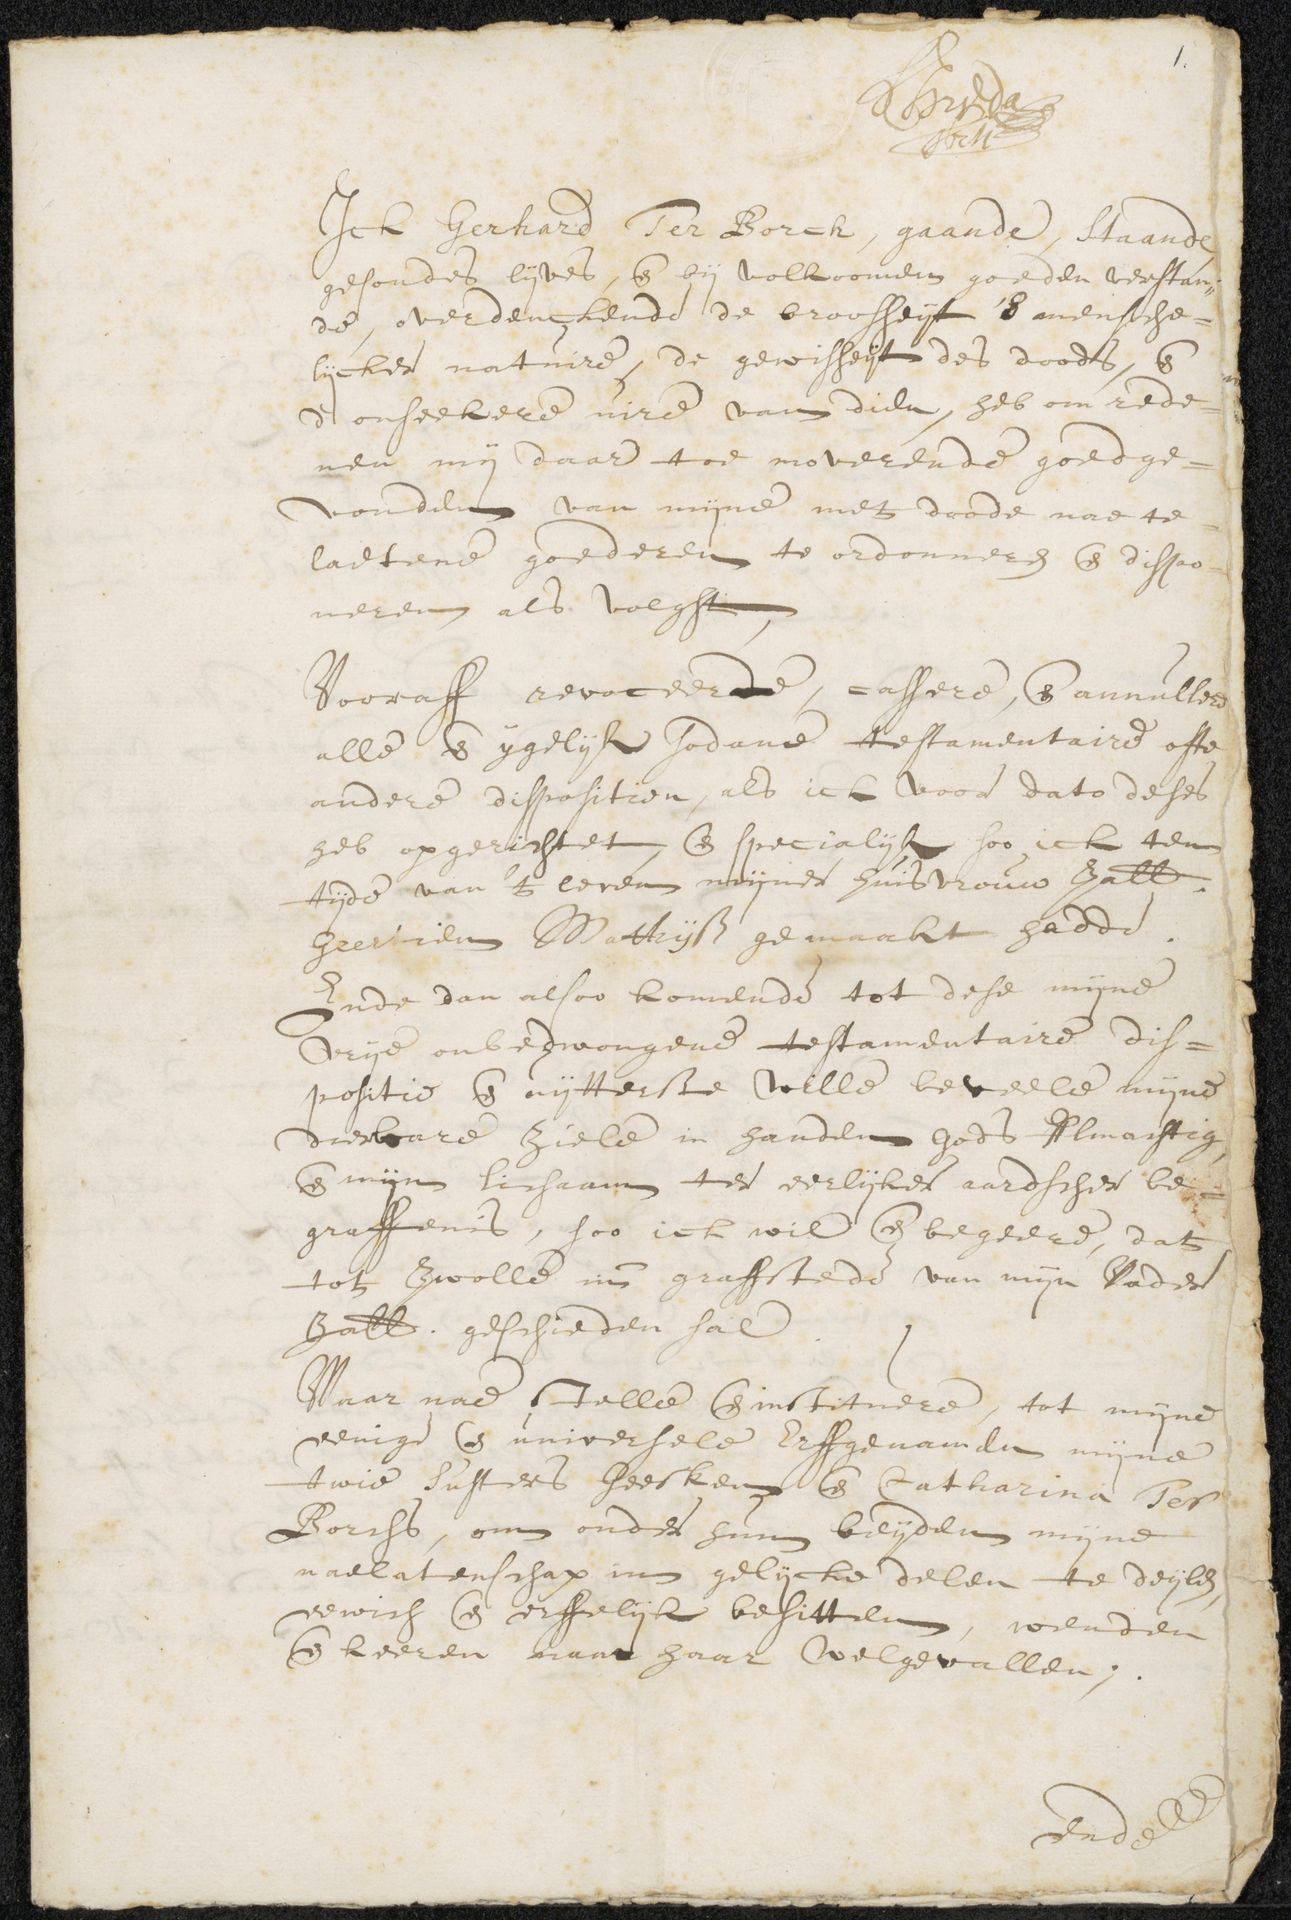 1.
Ick Gerhard Ter Borch, gaande, staande,
gesondes lijves, en bij volkoomen goeden verstan„
de, overdenckende de broosheijt 's menssche=
lijcker natuire, de gewisheijt des doods, en
d'onseekere uire van dien, heb om rede=
nen mij daar toe moverende goedge=
vonden van mijne met doode nae te=
laetene goederen te ordonneren en dispo=
neren als volght,
Vooraff revoceerde, cassere, en annullere
alle en ijgelijk sodane testamentaire ofte
andere dispositien, als ick voor dato deses
heb opgerichtet, en specialijk soo ick ten
tijde van 't leven mijner huisvrouw Zall.
Geertien Matthijß gemaakt hadde.
Ende dan alsoo komende tot dese mijne
vrije onbedwongene testamentaire dis=
positie en uijtterste wille beveele mijne
dierbare ziele in handen Gods Almachtig,
en mijn lichaam ter eerlijker aardscher be=
graffenis, soo ick wil en begeere, dat
tot Zwolle in graffstede van mijn Vader
Zall. geschieden sal.
Waar nae stelle en institnere, tot mijne
eenige en universele Erffgenamen mijne
twie susters Geesken en Catharina Ter
Borchs, om onder hun beijden mijne
naelatenschap in gelijcke delen te deijlen,
eewich en erffelijk besitten, wenden
en keeren naar haar welgevallen;.
Ende